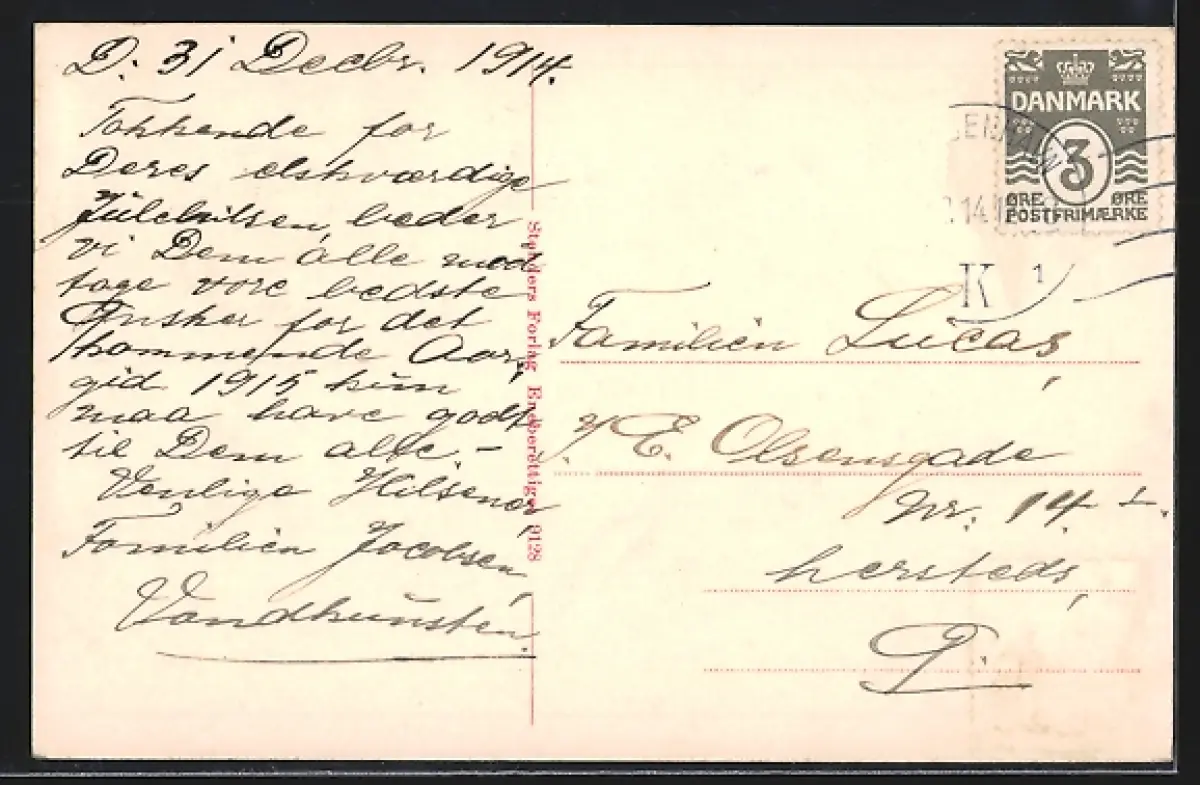 D. 31 Decbr. 1914.
Takkende for
Deres elskværdige
Julehilsen, beder
vi Dem alle mod
tage vore bedste
Ønsker for det
kommende Aar,
gid 1915 kun
maa have godt
til Dem alle –
Venlige Hilsener
Familien Jacobsen,
Vandkunsten.
Stenders Forlag Eneberettiget 9128
DANMARK
3
ØRE ØRE
POSTFRIMÆRKE
14
K 1
Familien Lucas,
E. Olsensgade
Nr. 14
hersteds,